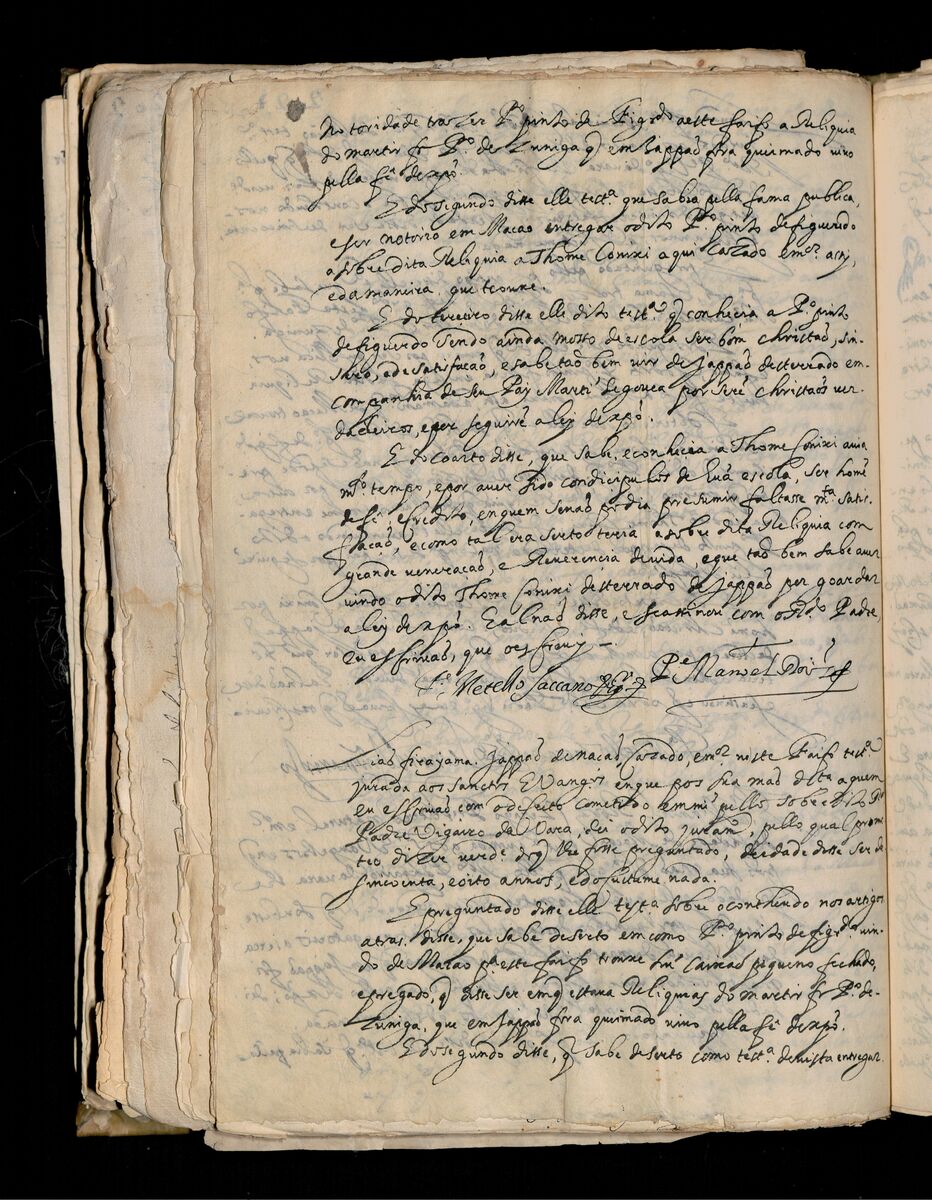 notoridade trazer Pº pinto de Figdo aeste faifo a Reliquia
do martir fr Pº de Zuniga q̃ em Jappaõ fora queimado vivo
pella fé de xpõ.
E do segundo disse elle testª que sabia pella fama publica,
e ser notorio em Macao entregar o dito Pº pinto de figueredo
a sobre dita Reliquia a Thome Conixi aqui cazado e morˢ assy,
e da maneira que trouxe.
E do terceiro disse elle dito testª q̃ conhecia a Pº pinto
de figueredo sendo ainda mosso de escola ser bom christaõ, sin-
sero, e de satisfacaõ, e sabe taõ bem vir de Jappaõ desterrado em
companhia de seu Pay Marti de gouea por serẽ christaõs ver
dadeiros, e por seguirẽ a ley de xpõ.
E do coarto disse, que sabe, e conhecia a Thome Conixi a
mᵗᵒ tempo, e por aver sido condicipulos de huã escola, ser homẽ
de fé, e credito, en quem senaõ podia presumir faltasse mᵗᵃ satis-
facaõ, e como tal era serto teria a sobre dita Reliquia com
grande veneracaõ, e Reverencia devida, e que taõ bem sabe aver
vindo o dito Thome Conixi desterrado de Jappaõ por goardar
a ley de xpõ. E al naõ disse, e se assinou com o dito Padre,
eu escrivaõ, que o escrevy –
Metello Saccano Pᵉ Manoel Roiz
Jappaõ de nacaõ, cazado, e morˢ neste Faifo testª
jurada aos sanctos Evangˢ en que pos sua maõ dereita a quem
eu escrivaõ com o de feito cometido em mi pello sobre dito Rº
Padre Vigairo da Vara, dei o dito juramᵗᵒ, pello qual prome
teo dizer verdade do q̃ lhe fosse preguntado, de idade disse ser de
sincoenta, e oito annos, e do custume nada.
E preguntado disse elle testª sobre o contheudo nos artigos
atras. disse, que sabe de serto em como Pº pinto de figdo vin-
do de Macao pª este faifo trouxe hũ caixaõ piqueno fechado,
e pregado, q̃ disse ser em q̃ estava Reliquias do martir fr Pº de-
Zuniga, que em Jappaõ fora queimado vivo pella fé de xpõ.
E do segundo disse, q̃ sabe de serto como testª de vista entregar